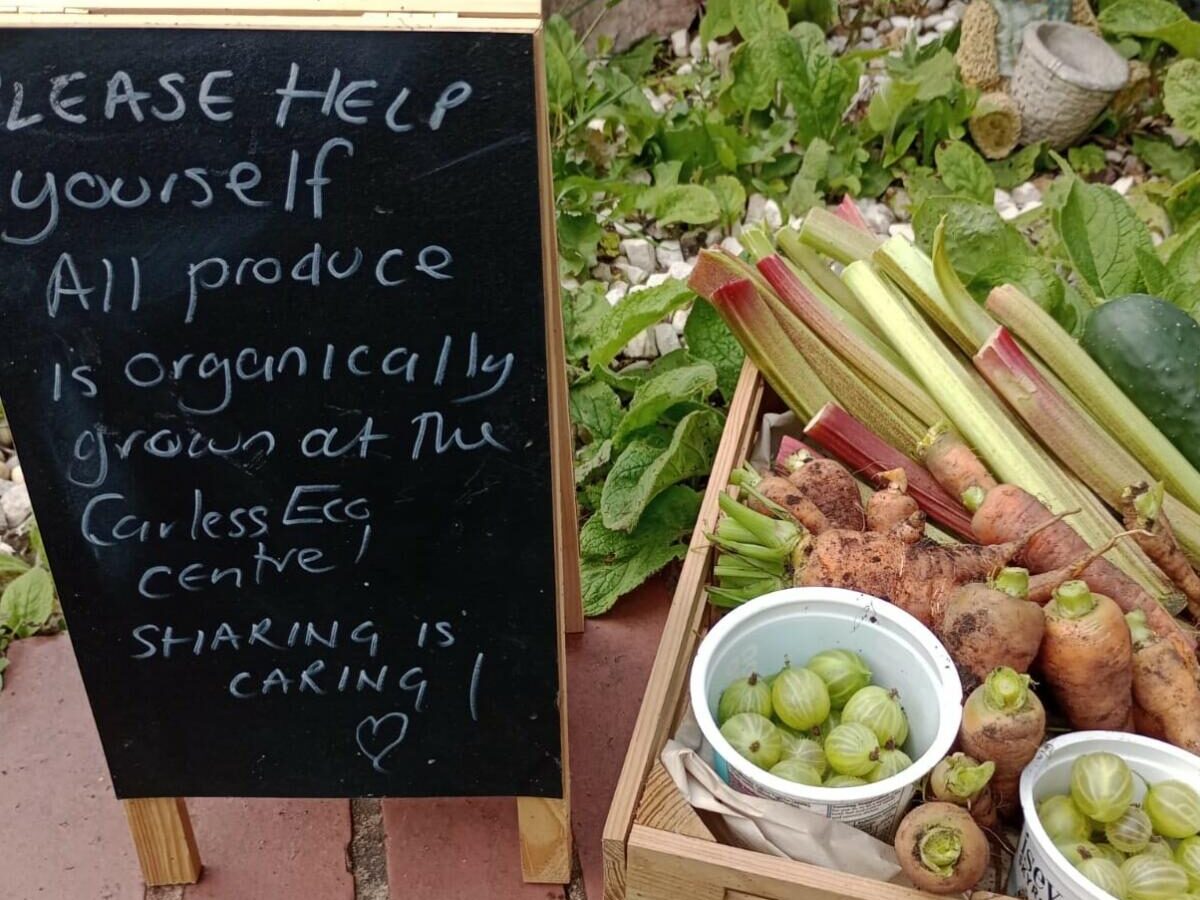 PLEASE HELP
yourself
All produce
is organically
grown at The
Carless Eco
centre!
SHARING IS
CARING!